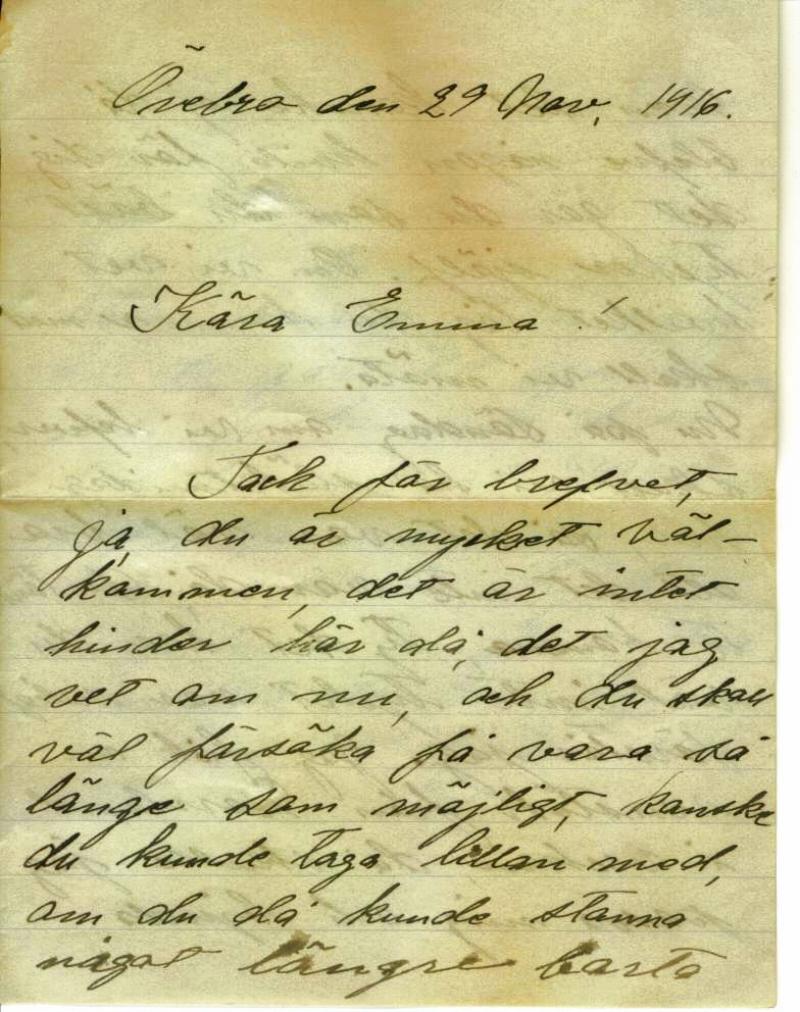 Örebro den 29 Nov. 1916.
Kära Emma!
Tack för brefvet,
ja, du är mycket väl-
kommen, det är intet
hinder här då, det jag
vet om nu, och du skall
väl försöka få vara så
länge som möjligt, kanske
du kunde taga lillan med,
om du då kunde stanna
något längre borta